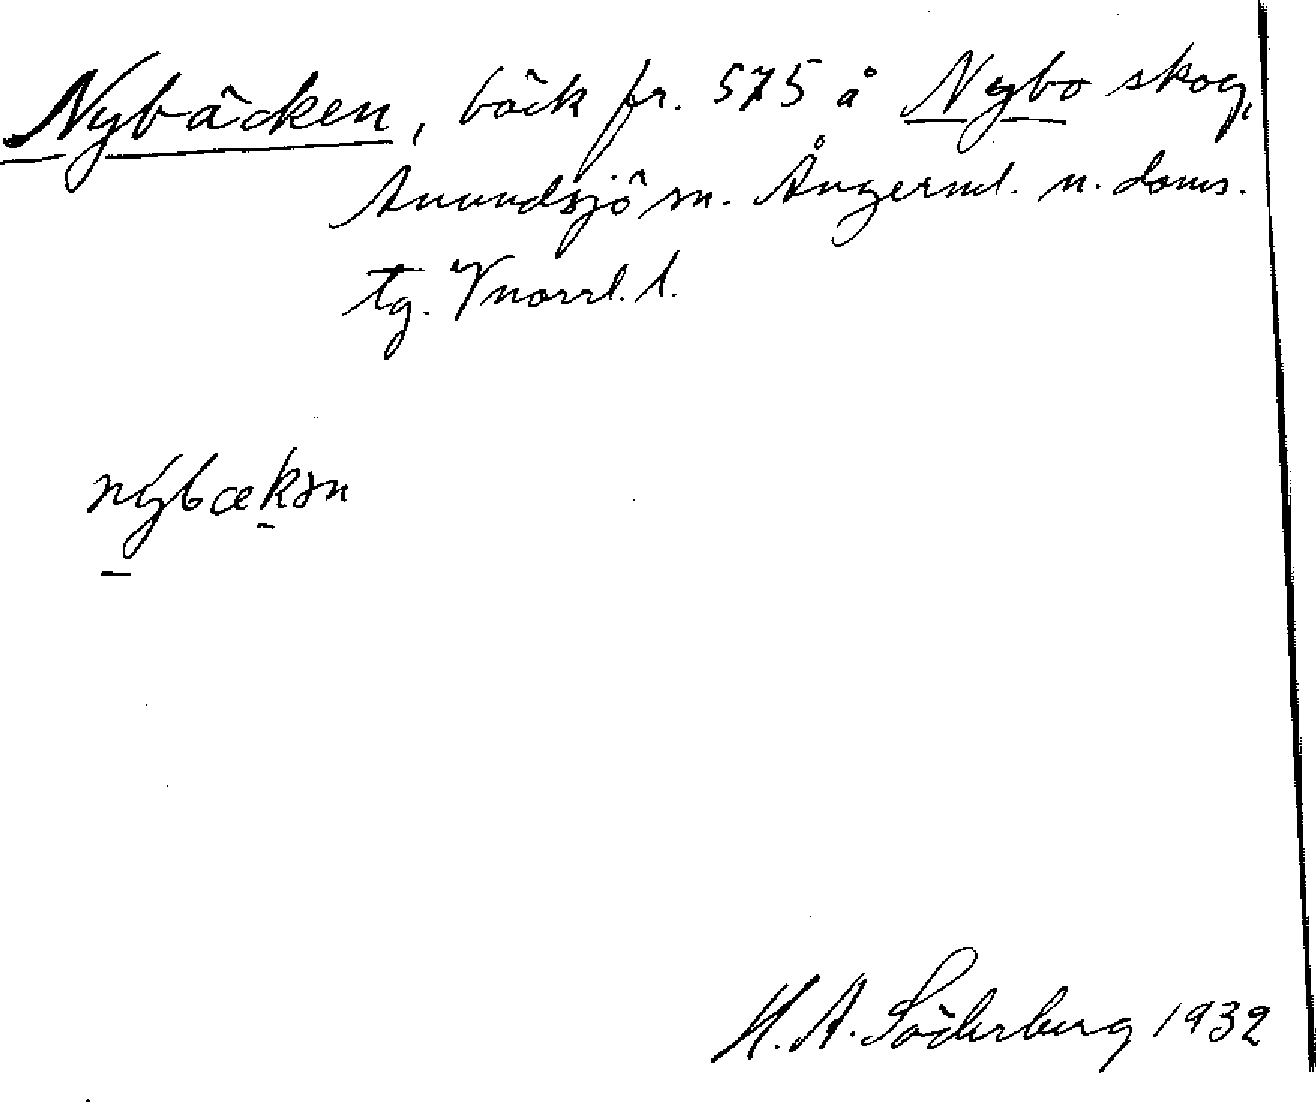 Nybäcken, bäck fr. 575 å Nybo skog,
Anundsjö sn. Ångerml. n. doms.
tg. Vnorrl. l.
nýbækən
H. A. Söderberg 1932